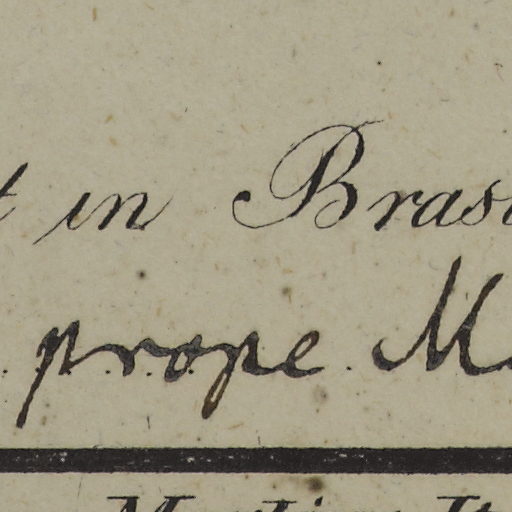 in Bras
prope M